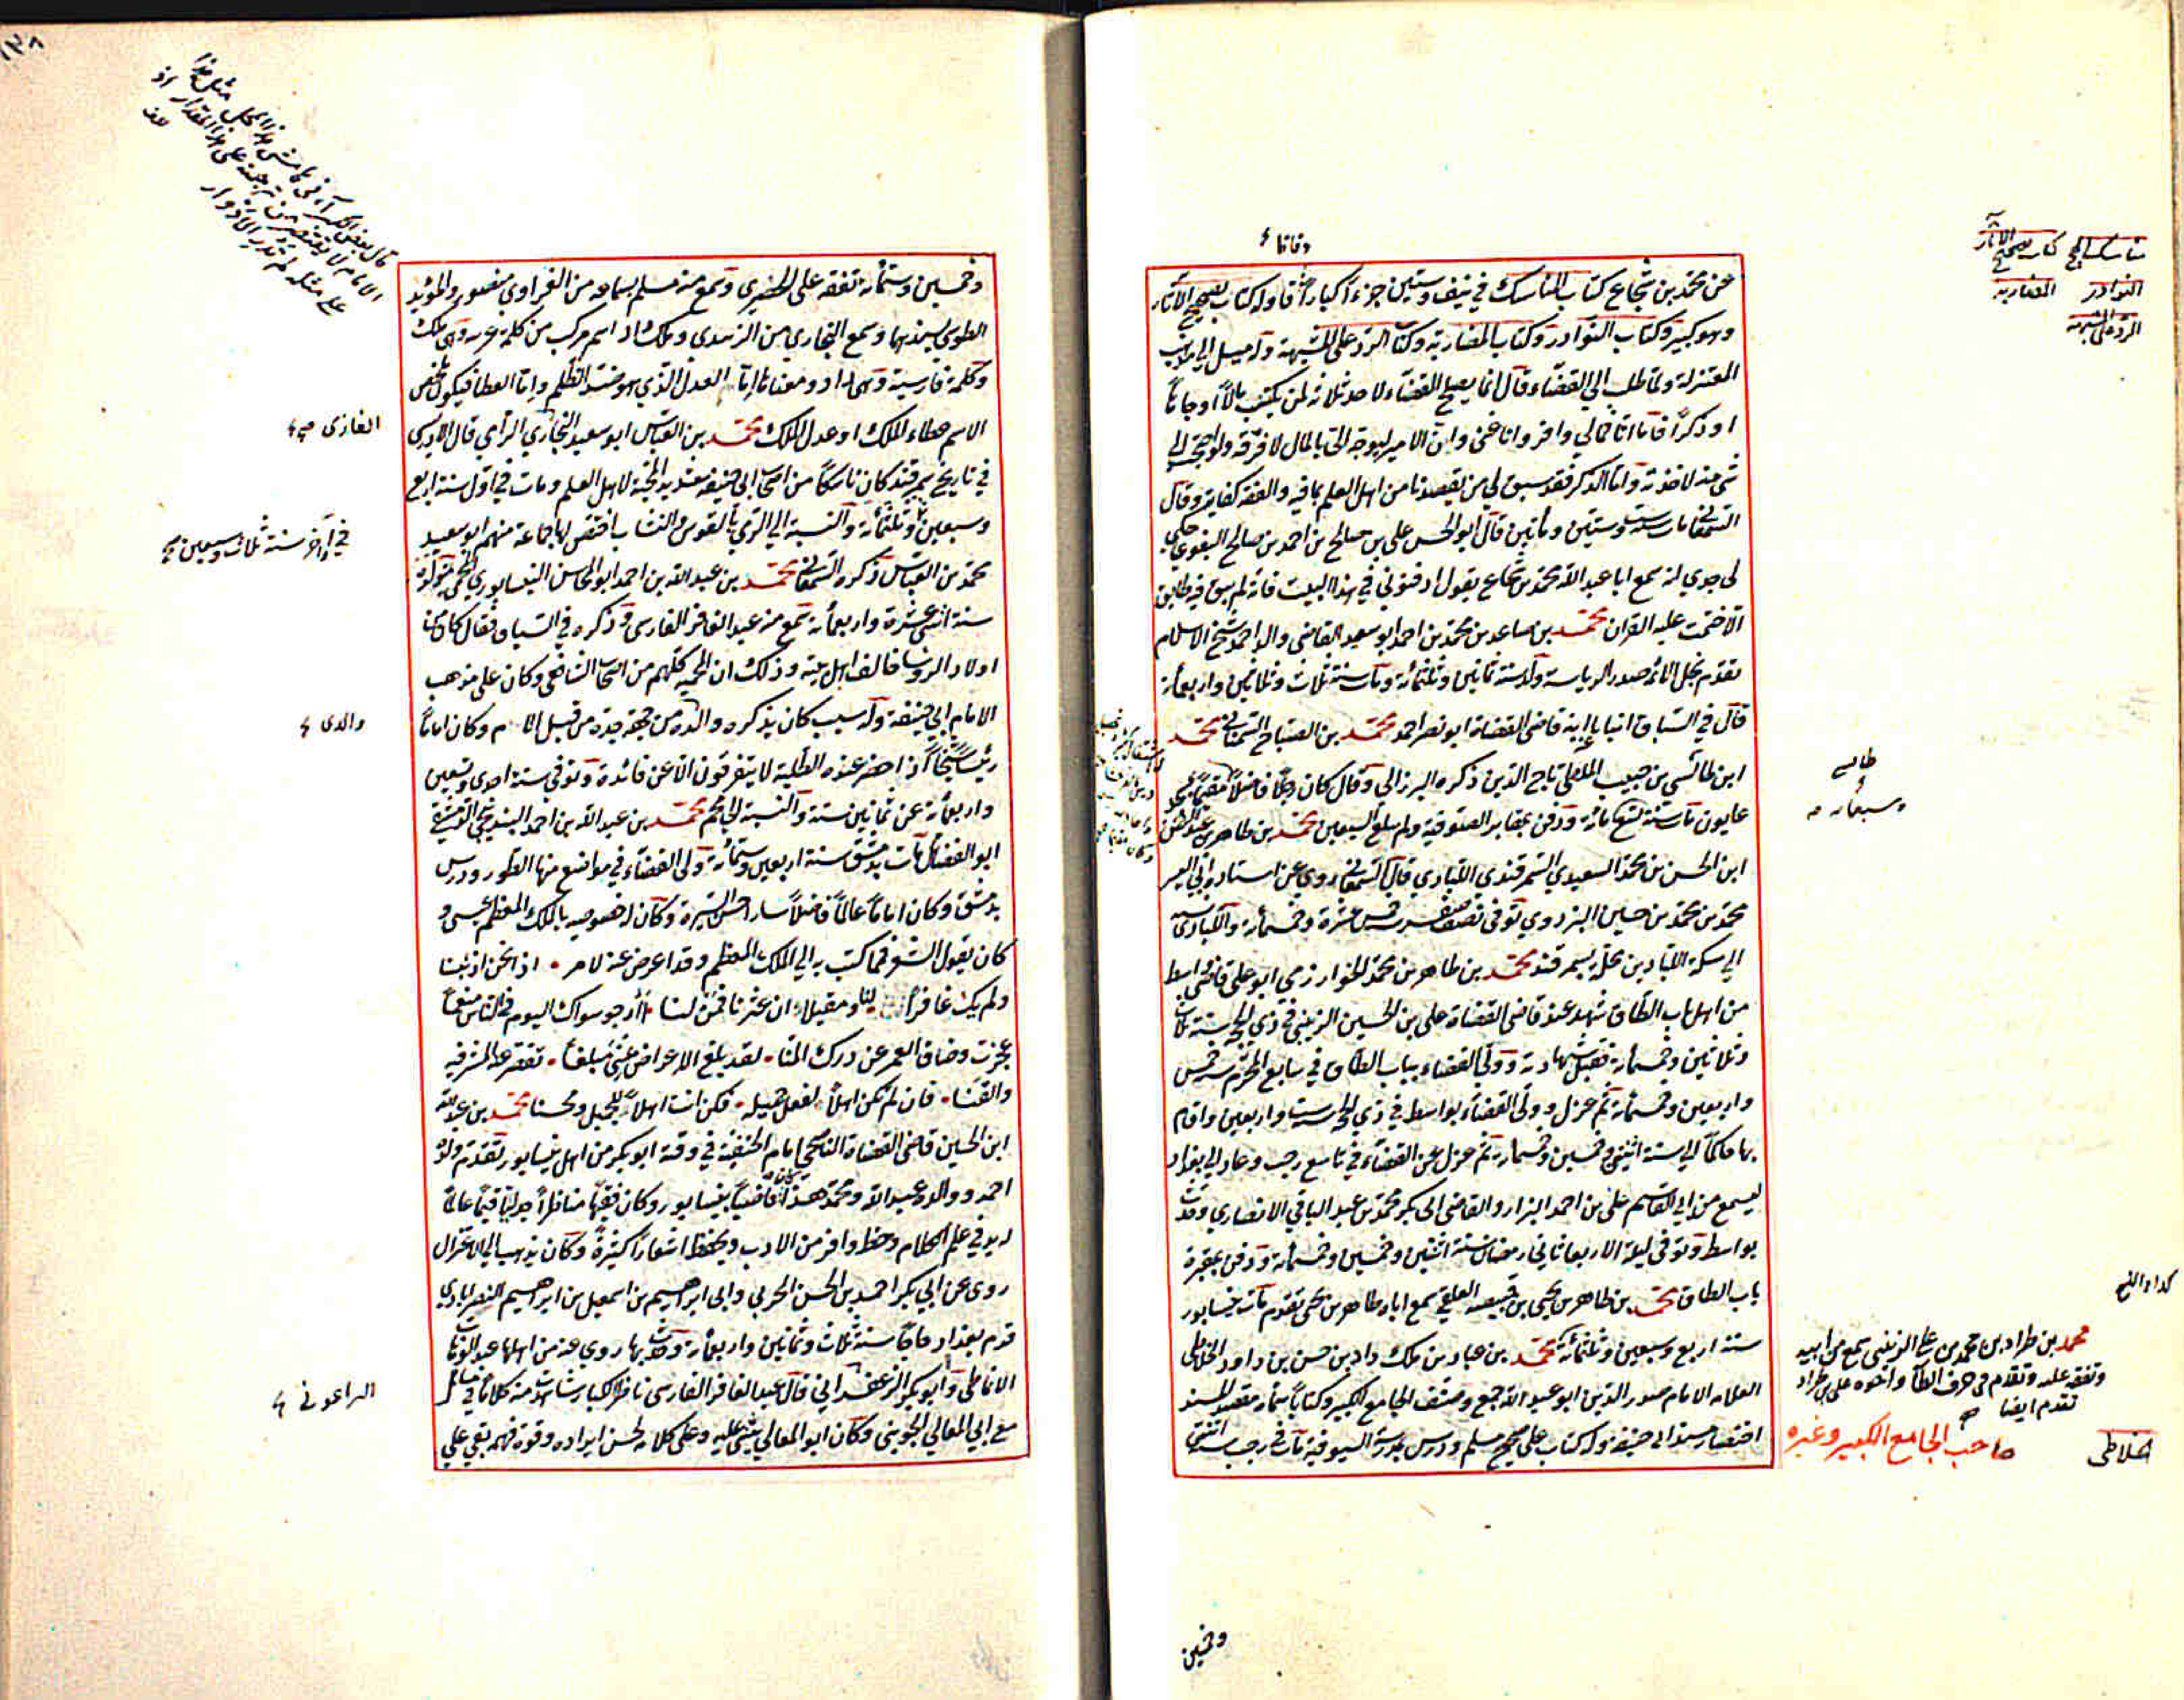 عن محمد بن شجاع كتاب المناسك في نيف وستين جزءا كبارا وله كتاب تصحيح الآثار
وهو كبير وكتاب النوادر وكتاب المضاربة وكتاب الرد على المشبهة وله ميل الى مذهب
المعتزلة ولما طلب الى القضاء قال انما يصلح القضاء لاحد ثلاثة لمن يكتسب مالا او جاها
او ذكرا فاما انا فمالي وافر وانا غني وان الامير ليوجه الي بالمال لافرقه ولو احتجت الى
شي منه لاخذته واما الذكر فقد سبق لي من يقصدنا من اهل العلم والفقه كفاية وقال
السمعاني مات سنة ست وستين ومأتين قال ابو الحسن علي بن صالح بن احمد بن صالح البغوي حكى
لي جدي انه سمع ابا عبد الله محمد بن شجاع يقول ادفنوني في هذا البيت فانه لم يبق فيه طابق
الا ختمت عليه القران محمد بن صاعد بن محمد بن احمد ابو سعيد القاضي والد احمد شيخ الاسلام
تقدم نجل الائمة صدر الرياسة ولد سنة ثمانين وثلثمائة ومات سنة ثلاث وثلاثين واربعمائة
قال في السياق انبا ابنه قاضي القضاة ابو نصر احمد محمد بن الصباح السمعاني محمد
ابن طالس بن حبيب الملقب تاج الدين ذكره البرزالي وقال كان رجلا فاضلا
مات سنة تسع مائة ودفن بمقابر الصوفية ولم يبلغ السبعين محمد بن طاهر بن عبد الرحمن
ابن الحسن بن محمد السعيدي السمرقندي اللبادي قال السمعاني روي عن استاده ابي اليسر
محمد بن محمد بن حسين البزدوي توفي نصف صفر سنة خمس عشرة وخمسمائة واللبادي نسبة
الى سكة اللبادين محلة بسمرقند محمد بن طاهر بن محمد الخوارزمي ابو علي قاضي واسط
من اهل باب الطاق شهد عند قاضي القضاة علي بن الحسين الزينبي في ذي الحجة سنة ثلاث
وثلاثين وخمسمائة فقبل شهادته وولي القضاء بباب الطاق في سابع المحرم سنة خمس
واربعين وخمسمائة ثم عزل وولي القضاء بواسط في ذي الحجة سنة ست واربعين واقام
بها حاكما الى سنة اثنين وخمسين وخمسمائة ثم عزل عن القضاء في تاسع رجب وعاد الى بغداد
ليسمع من ابي القاسم علي بن احمد البزار والقاضي ابي بكر محمد بن عبد الباقي الانصاري وحدث
بواسط وتوفي ليلة الاربعا ثاني رمضان سنة اثنتين وخمسين وخمسمائة ودفن بمقبرة
باب الطاق محمد بن طاهر بن يحيى بن قبيصه الفلقي سمع اباه طاهر بن يحيى تقدم مات بنيسابور
سنة اربع وسبعين وثلثمائة محمد بن عباد بن ملك داد بن حسن بن داود الخلاطي
العلامه الامام صدر الدين ابو عبد الله جمع وصنف الجامع الكبير وكتابا سماه مقصد المسند
اختصار مسند ابي حنيفة وله كتاب على صحيح مسلم ودرس بمدرسة السيوفية مات في رجب سنة اثنتي
وخمسين
مناسك الحج كتاب تصحيح الآثار
النوادر المضاربه
الرد على المشبهه
طالس
وسبعمائة
محمد بن طراد بن محمد بن علي الزينبي سمع من ابيه
وتفقه عليه وتقدم في حرف الطاء واخوه علي بن طراد
تقدم ايضا
صاحب الجامع الكبير وغيره
خلاطي
وخمسين وستمائة تفقه على الحصيري وسمع منه مسلم بسماعه من الفراوي منصور والمؤيد
الطوسي بسندهما وسمع البخاري من الزبيدي وملك داد اسم مركب من كلمة عربيه وهي ملك
وكلمة فارسية وهي داد ومعناها اما العدل الذي هو ضد الظلم واما العطا فيكون معنى
الاسم عطاء الملك او عدل الملك محمد بن العباس ابو سعيد البخاري الرامي قال الادريسي
في تاريخ سمرقند كان ناسكا من اصحاب ابي حنيفة شديد المحبة لاهل العلم ومات في اول سنة اربع
وسبعين وثلثمائة والنسبة الى الرمي بالقوس والنشاب اختص بها جماعة منهم ابو سعيد
محمد بن العباس ذكره السمعاني محمد بن عبد الله بن احمد ابو المحاسن النيسابوري المحمي مولده
سنة اثنتي عشرة واربعمائة سمع منه عبد الغافر الفارسي وذكره في السياق فقال كان من
اولاد الرؤسا خالف اهل بيته وذلك ان المحميه كلهم من اصحاب الشافعي وكان على مذهب
الامام ابي حنيفة وله سبب كان يذكره والده من جهة جده من قبل الام وكان اماما
رئيسا شيخا اذا حضر عنده الطلبة لا يتفرقون الا عن فائدة وتوفي سنة احدى وتسعين
واربعمائة عن ثمانين سنة والنسبة الى محم محمد بن عبد الله بن احمد
ابو الفضائل مات بدمشق سنة اربعين وستمائة ولي القضاء في مواضع منها الطور ودرس
بدمشق وكان اماما عالما فاضلا سار احسن السيرة وكان له خصوصيه بالملك المعظم عيسى و
كان يقول الشعر فمما كتب به الى الملك المعظم وقد اعرض عنه لامر اذا نحن اذنبنا
ولم يك غافرا لنا ومقيلا ان عثرنا فمن لنا أأرجو سواك اليوم في الناس منعما
عجزت وضاق العمر عن درك المنا لقد بلغ الاعراض مني مبلغا تقصر عنه المشرفيه
والقنا فان لم نكن اهلا لفعل جميله فكن انت اهلا للجميل ومحسنا محمد بن عبد الله
ابن الحسين قاضي القضاة الناصحي امام الحنفية في وقته ابو بكر من اهل نيسابور تقدم ولده
احمد ووالده عبد الله ومحمد هذا كان قاضيا بنيسابور وكان فقيها مناظرا جدليا قيما عالما
له يد في علم الكلام وحظ وافر من الادب ويحفظ اشعارا كثيرة وكان يذهب الى الاعتزال
روى عن ابي بكر احمد بن الحسن الحربي وابي ابراهيم بن اسمعيل بن ابراهيم النصرابادي
قدم بغداد حاجا سنة ثلاث وثمانين واربعمائة وحدث بها روي عنه من اهلها عبد الوهاب
الانماطي وابو بكر الزعفراني قال عبد الغافر الفارسي ناظر الكبار شاهدت منه كلاما في مسائل
مع ابي المعالي الجويني وكان ابو المعالي يثني عليه وعلى كلامه لحسن ايراده وقوة فهمه بقي على
الغازي صح
في آخر سنة ثلاث وسبعين صح
والدي